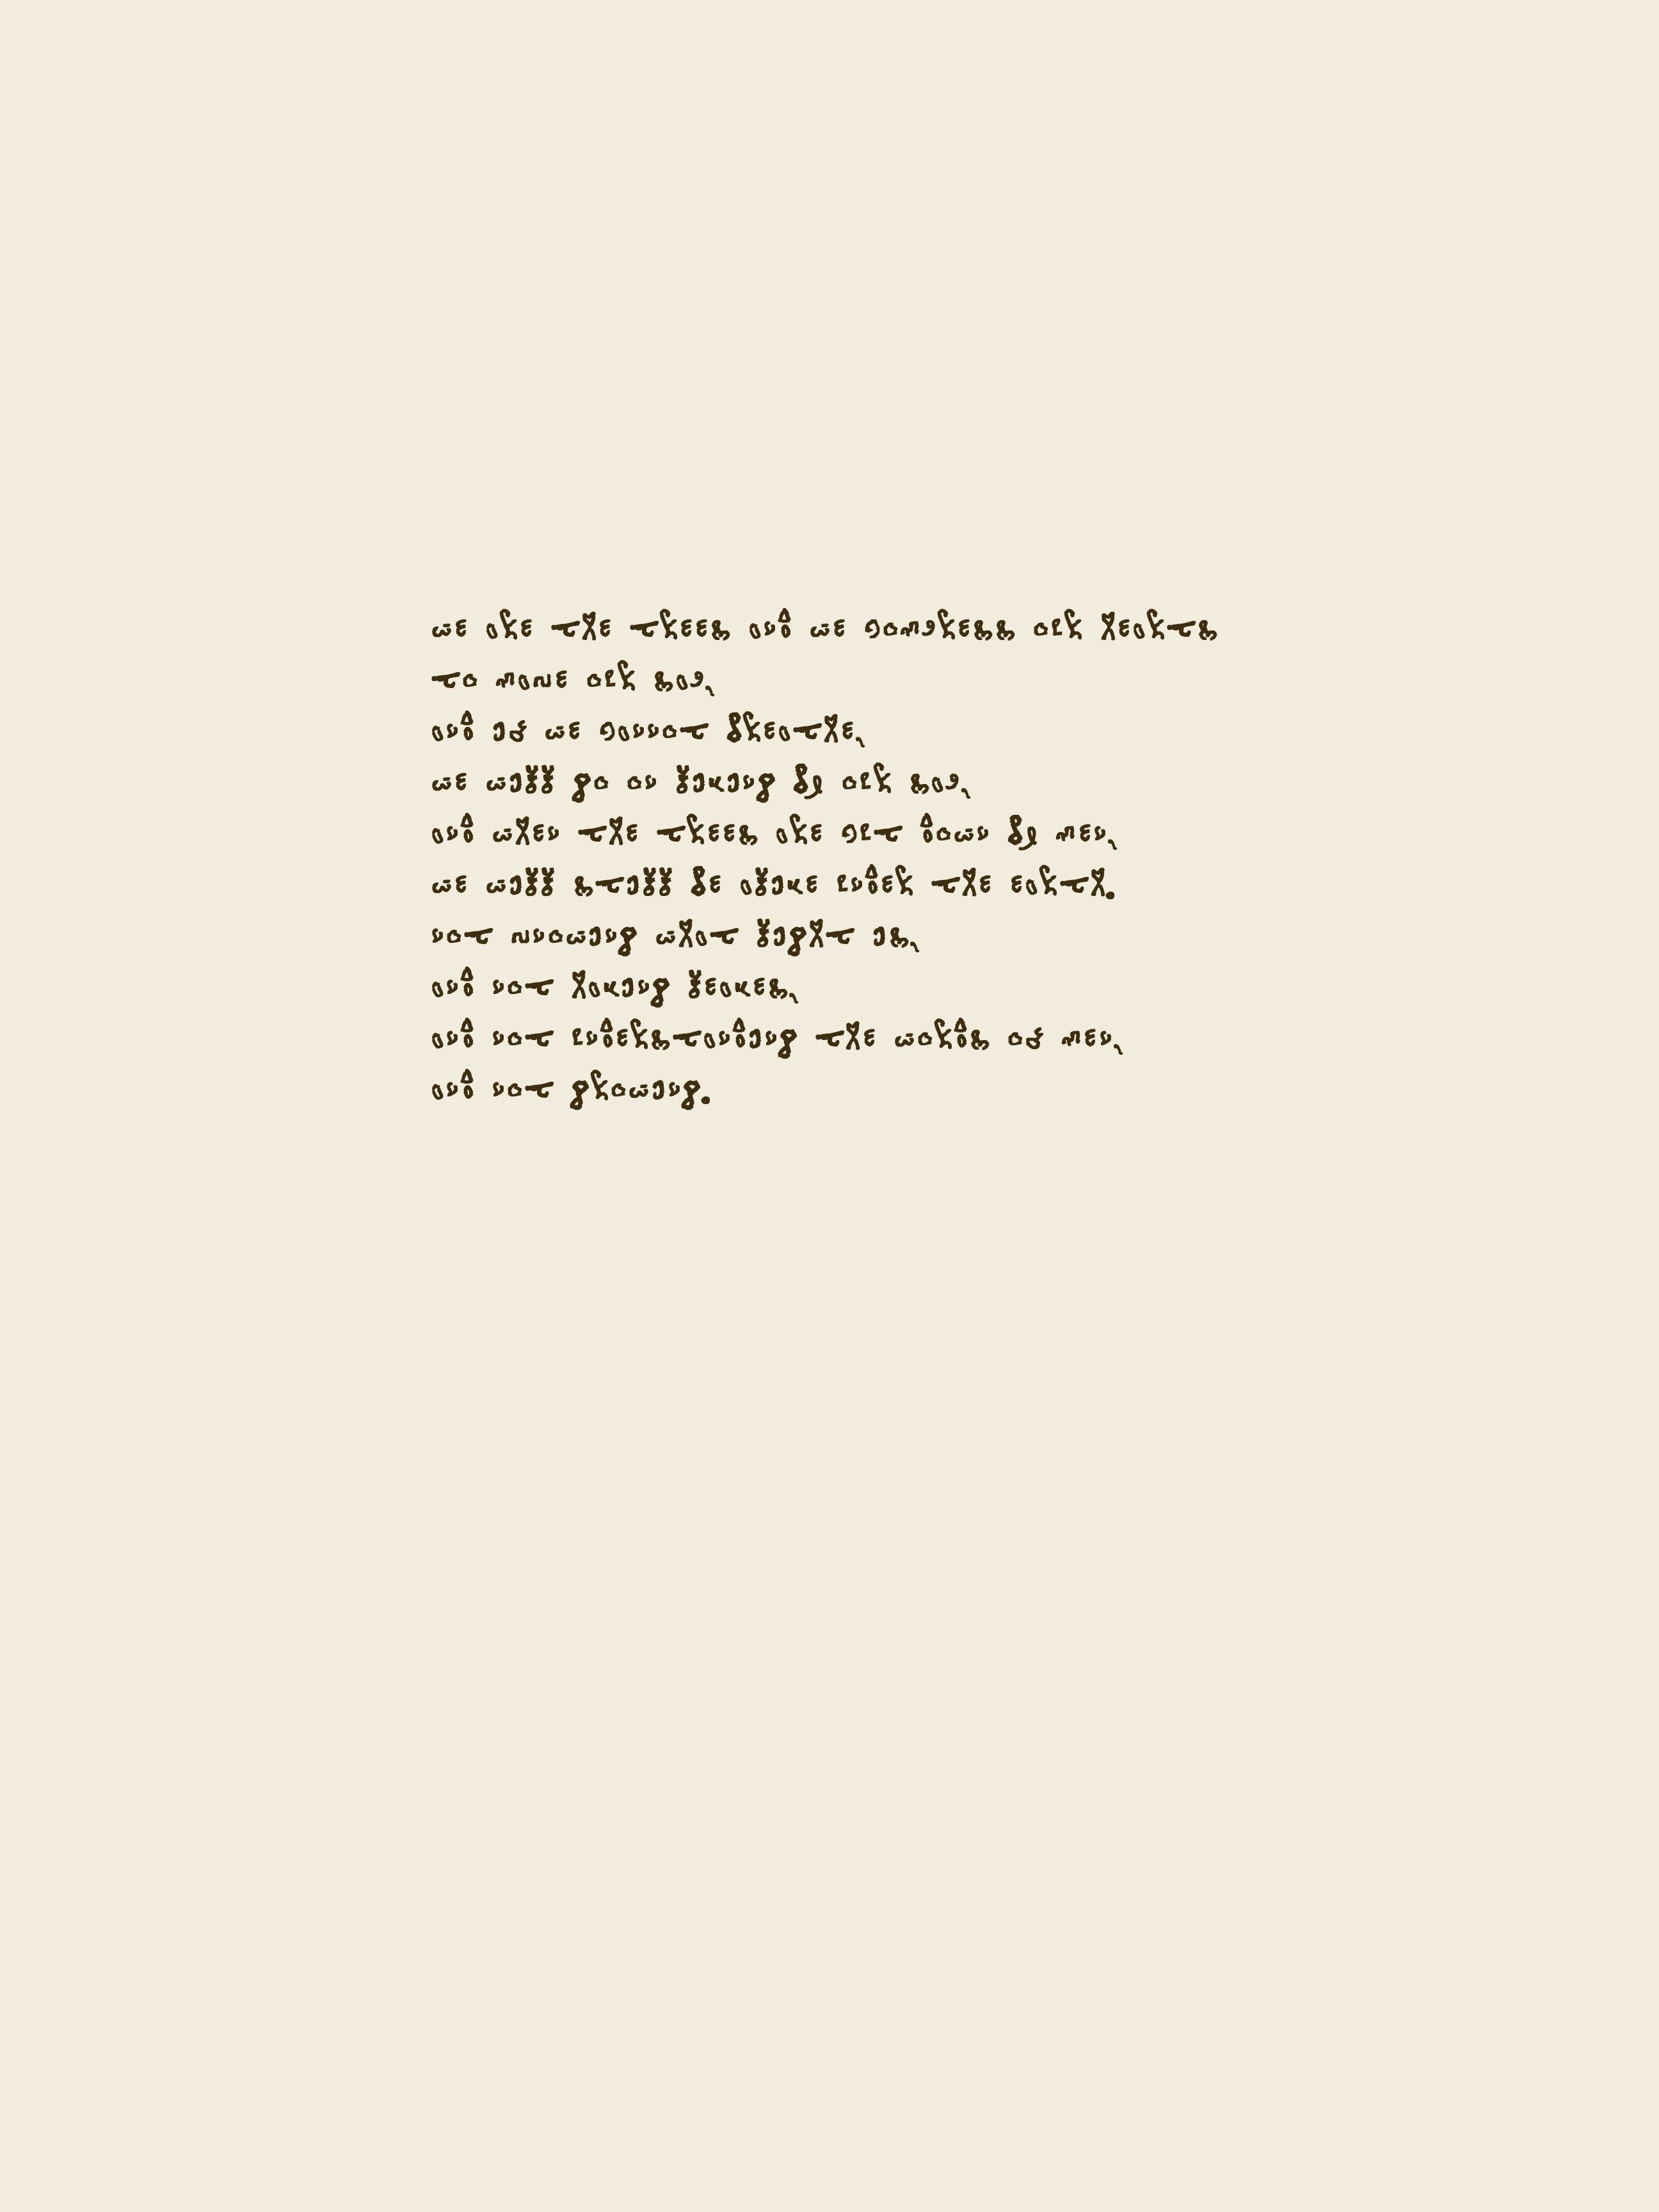 we are the trees and we compress our hearts
to make our sap,
and if we cannot breathe,
we will go on living by our sap,
and when the trees are cut down by men,
we will still be alive under the earth.
not knowing what light is,
and not having leaves,
and not understanding the words of men,
and not growing.